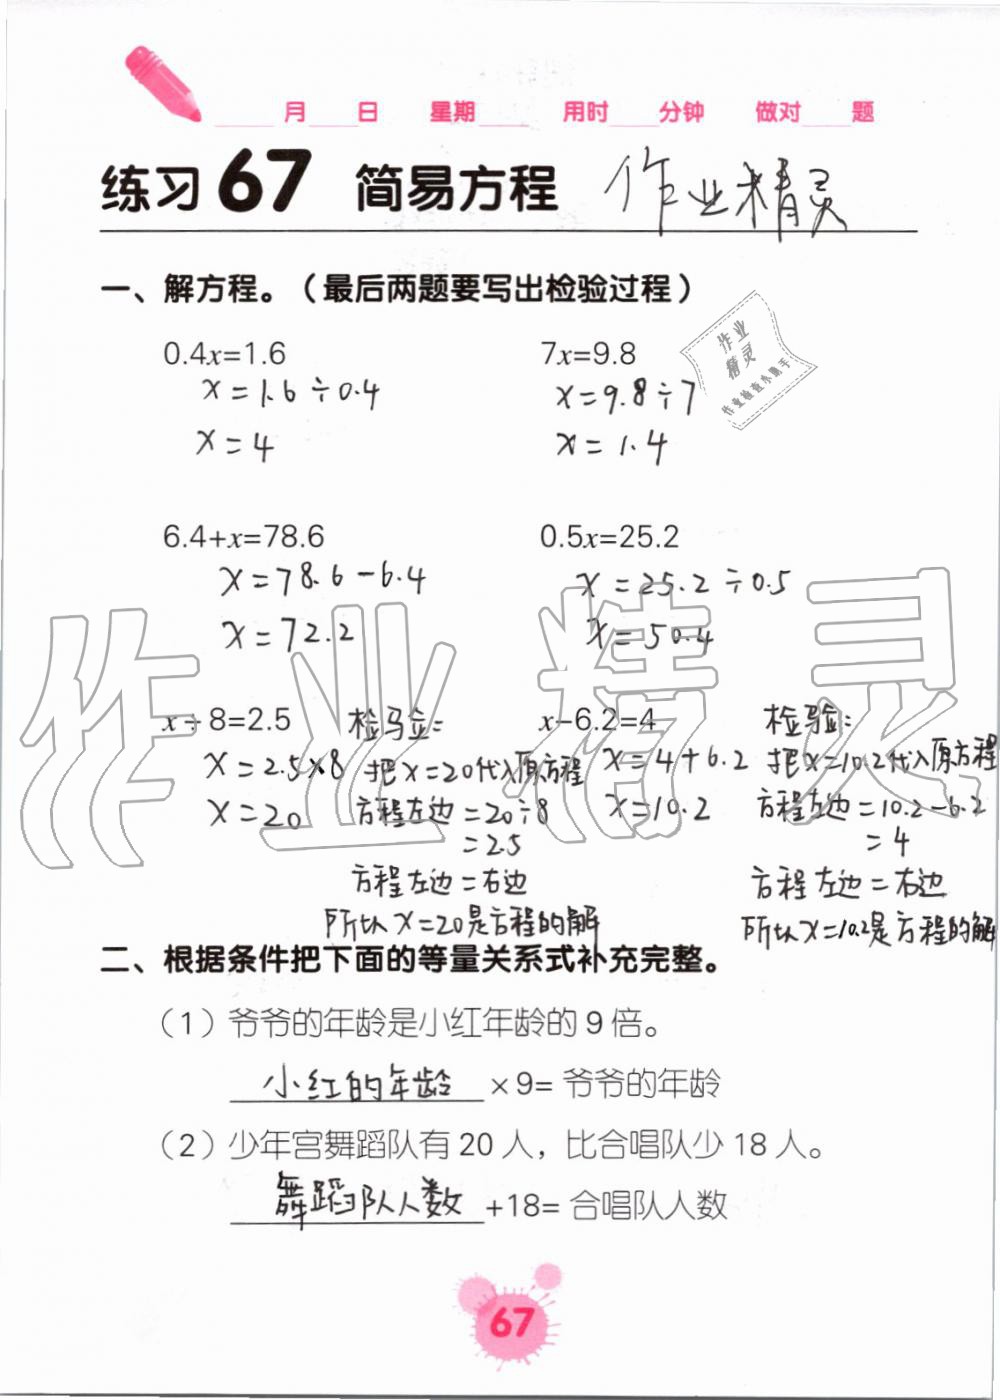 ____月____日 星期____ 用时____分钟 做对____题
练习67 简易方程 作业精灵
一、解方程。（最后两题要写出检验过程）
0.4x=1.6 7x=9.8
x=1.6÷0.4 x=9.8÷7
x=4 x=1.4
作业
精灵
作业检查小助手
6.4+x=78.6 0.5x=25.2
x=78.6-6.4 x=25.2÷0.5
x=72.2 x=50.4
作业精灵
x÷8=2.5 检验: x-6.2=4 检验:
x=2.5×8 把x=20代入原方程 x=4+6.2 把x=10.2代入原方程
x=20 方程左边=20÷8 x=10.2 方程左边=10.2-6.2
=2.5 =4
方程左边=右边 方程左边=右边
所以x=20是方程的解 所以x=10.2是方程的解
二、根据条件把下面的等量关系式补充完整。
（1）爷爷的年龄是小红年龄的9倍。
小红的年龄 ×9= 爷爷的年龄
（2）少年宫舞蹈队有20人，比合唱队少18人。
舞蹈队人数 +18= 合唱队人数
67